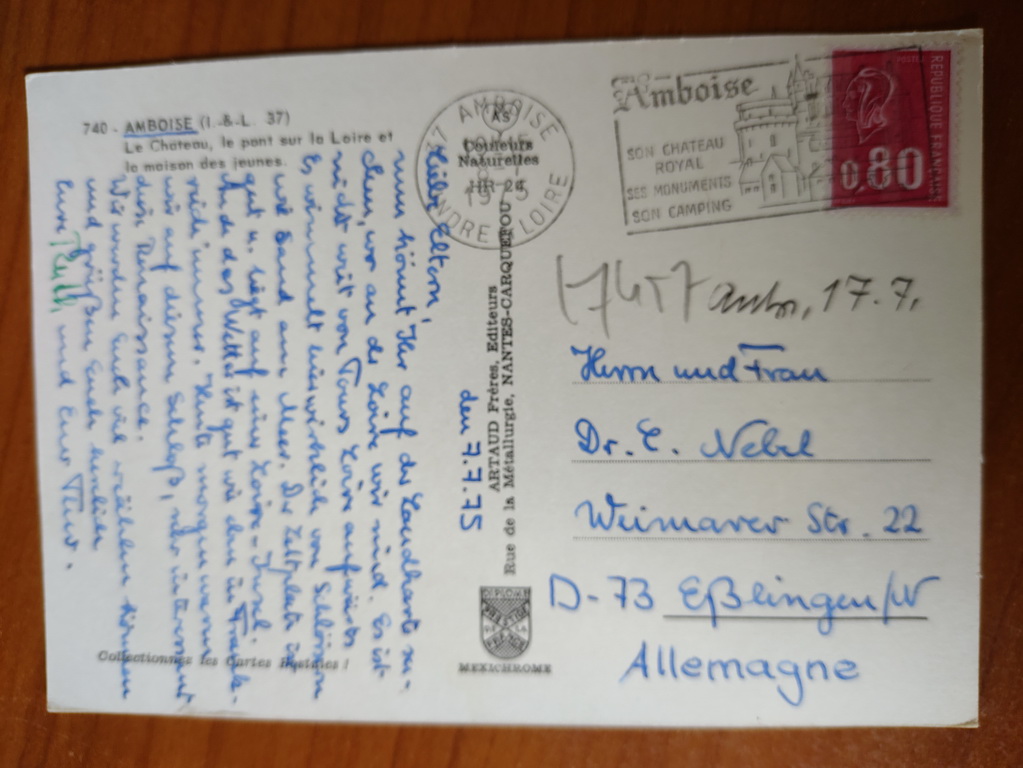 740 - AMBOISE (I.-&-L. 37)
Le Chateau, le pont sur la Loire et
la maison des jeunes.
As
Couleurs
Naturelles
HR 24
37 AMBOISE
INDRE LOIRE
Amboise
SON CHATEAU
ROYAL
SES MONUMENTS
SON CAMPING
POSTES
REPUBLIQUE FRANÇAISE
0,80
den 7.7.75
Liebe Eltern,
nun könnt Ihr auf der Landkarte su-
chen, wo an der Loire wir sind. Es ist
nicht weit von Tours Loire aufwärts
Es wimmelt hier wirklich von Schlössern
wie Sand am Meer. Der Zeltplatz ist
gut u. liegt auf einer Loire-Insel.
Ende das Wetter ist gut wie eben in Frank-
reich immer. Heute morgen waren
wir auf diesem Schloß, sehr interessant
die Renaissance.
Wir werden Euch viel erzählen können
und grüßen Euch herzlich
Eure Ruth und Euer
ARTAUD Frères, Editeurs
Rue de la Métallurgie, NANTES-CARQUEFOU
MEXICHROME
Collectionnez les Cartes Postales !
17.7.
Herrn und Frau
Dr. E. Nebel
Weimarer Str. 22
D-73 Eßlingen/N
Allemagne